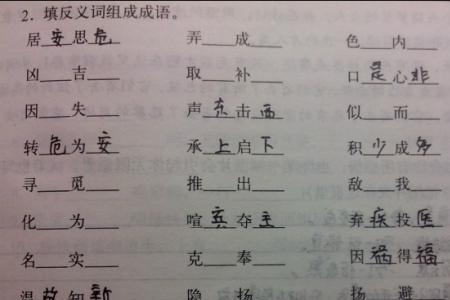 2. 填反义词组成成语。
居安思危 弄___成___ 色___内___
凶___吉___ 取___补___ 口是心非
因___失___ 声东击西 似___而___
转危为安 承上启下 积少成多
寻___觅___ 推___出___ 敌___我___
化___为___ 喧宾夺主 弃疾投医
名___实___ 克___奉___ 因祸得福
温故知新 隐___扬___ 扬___避___